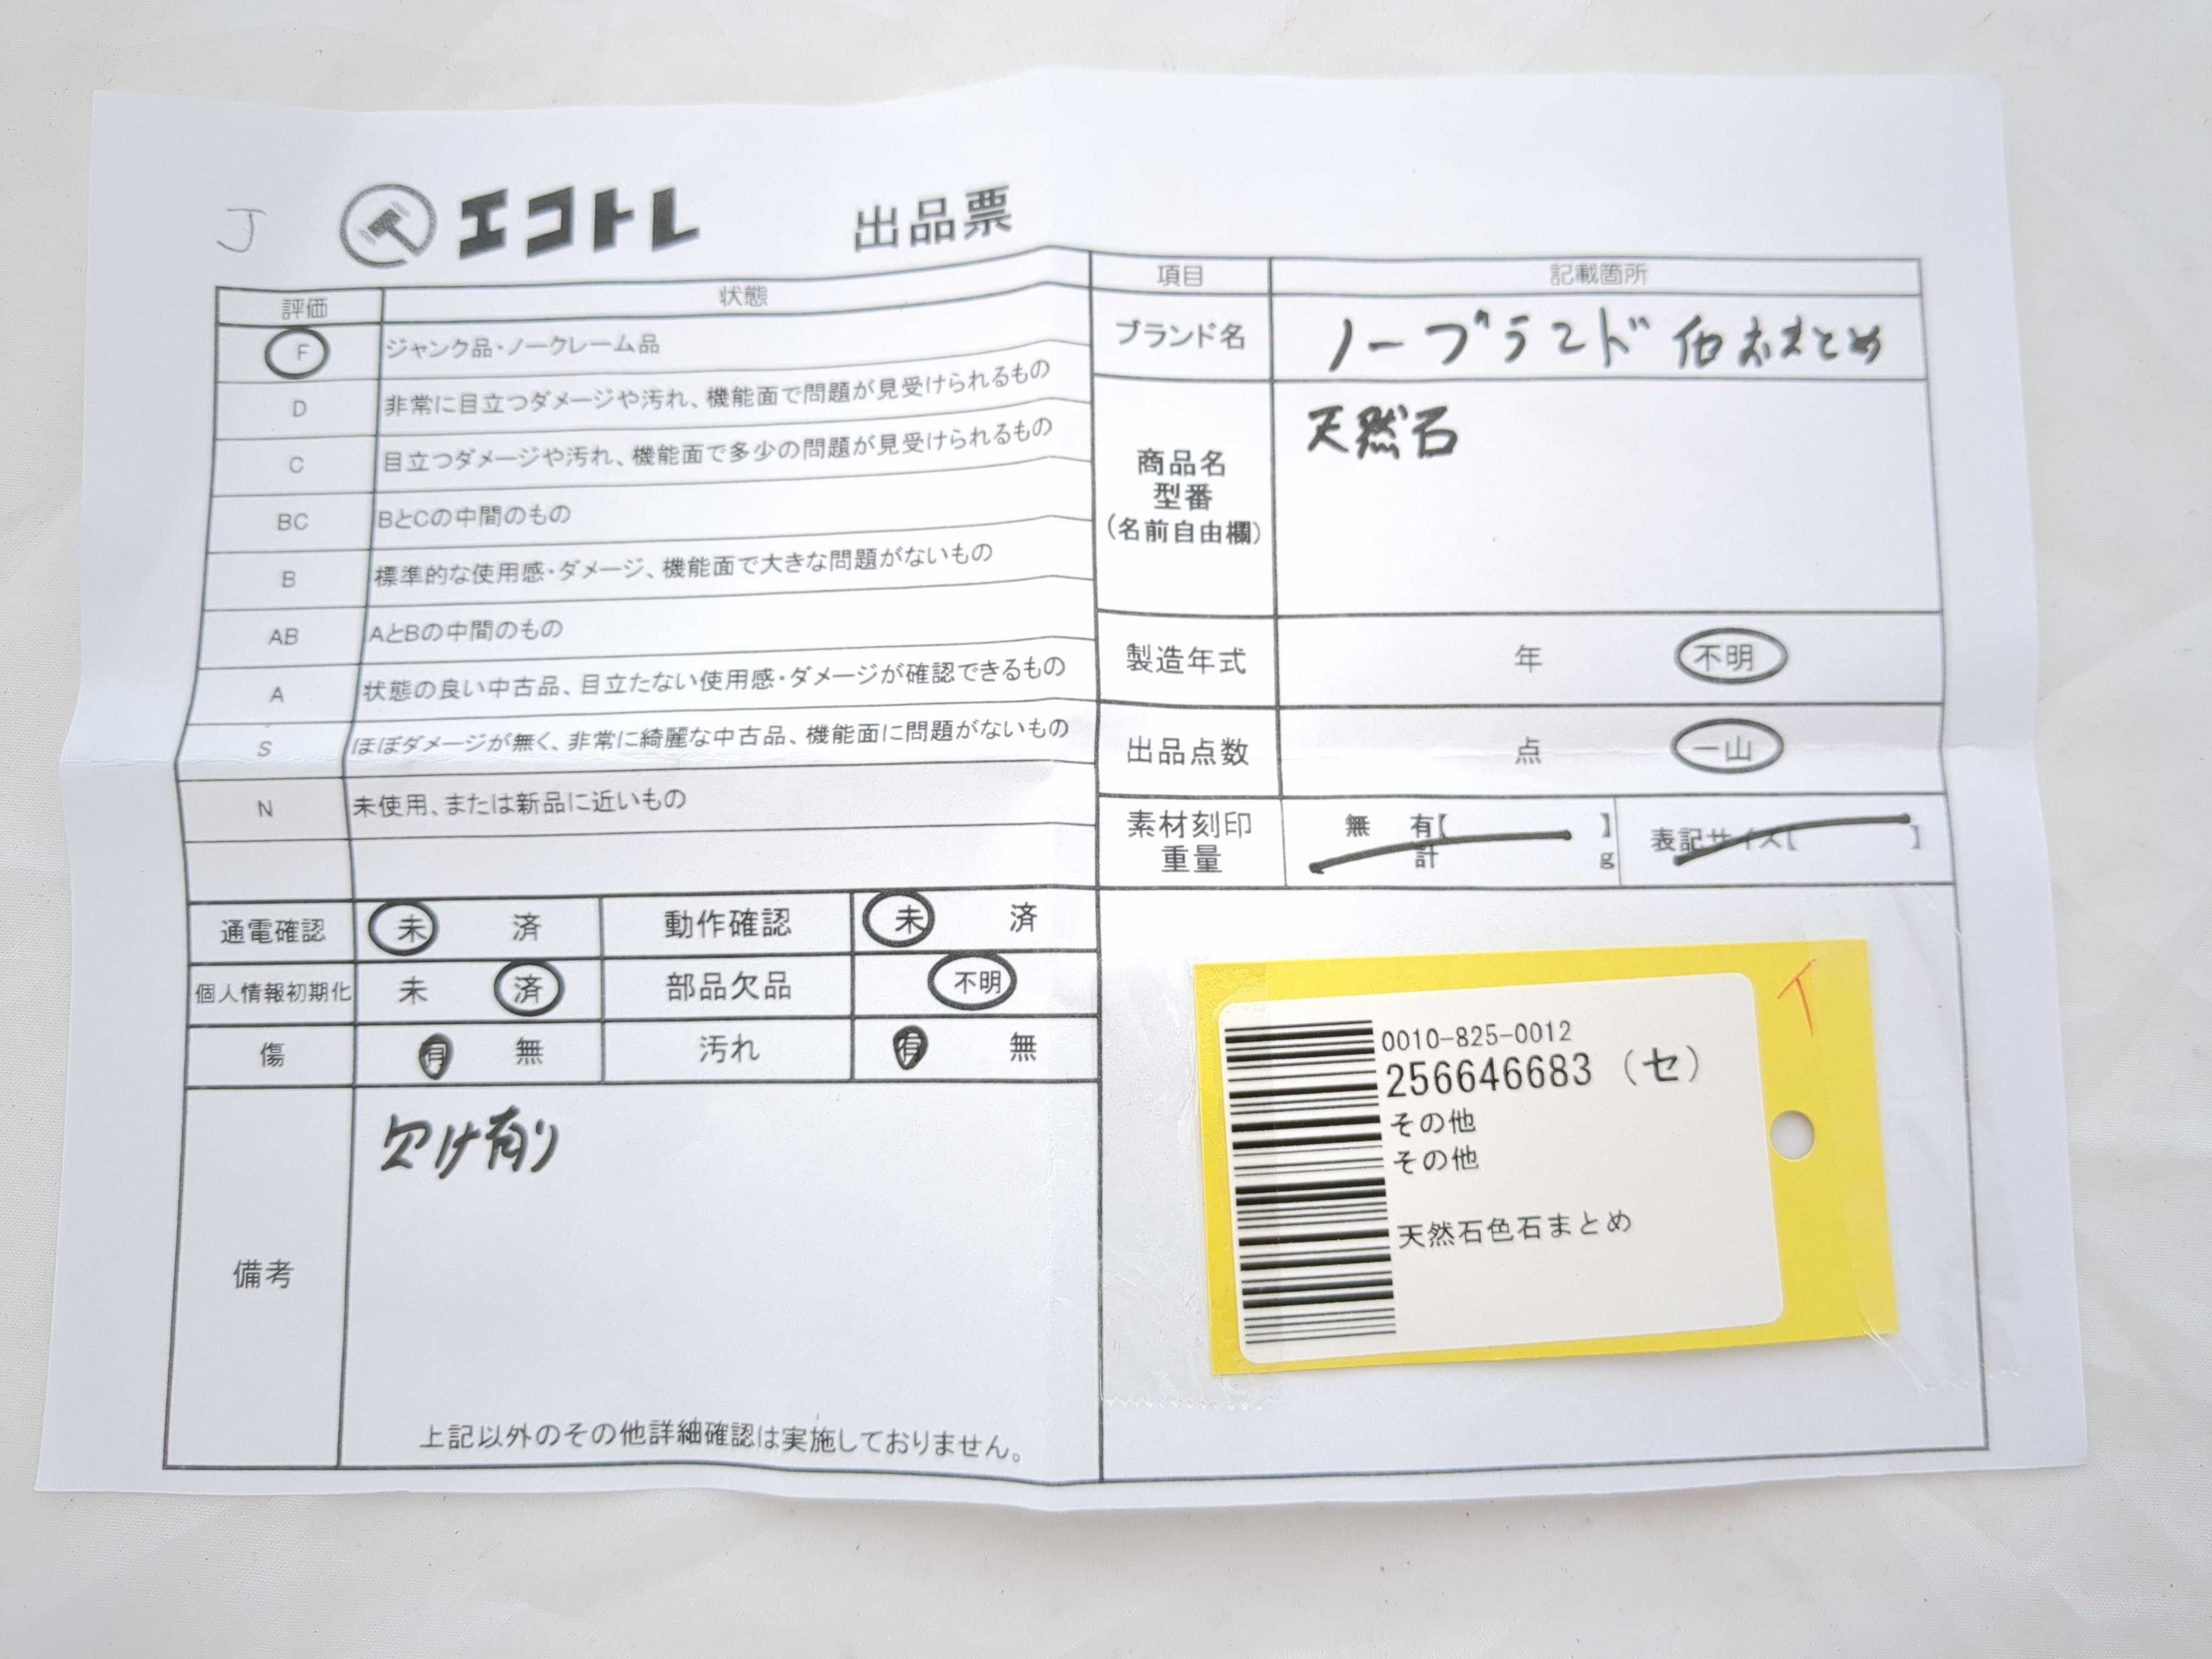 J
エコトレ 出品票
評価 状態
F ジャンク品・ノークレーム品
D 非常に目立つダメージや汚れ、機能面で問題が見受けられるもの
C 目立つダメージや汚れ、機能面で多少の問題が見受けられるもの
BC BとCの中間のもの
B 標準的な使用感・ダメージ、機能面で大きな問題がないもの
AB AとBの中間のもの
A 状態の良い中古品、目立たない使用感・ダメージが確認できるもの
S ほぼダメージが無く、非常に綺麗な中古品、機能面に問題がないもの
N 未使用、または新品に近いもの
通電確認 未 済 動作確認 未 済
個人情報初期化 未 済 部品欠品 不明
傷 有 無 汚れ 有 無
備考
欠け有り
上記以外のその他詳細確認は実施しておりません。
項目 記載箇所
ブランド名 ノーブランド 他おまとめ
商品名
型番
(名前自由欄)
天然石
製造年式 年 不明
出品点数 点 一山
素材刻印 無 有【 】
重量 計 g
表記サイズ【 】
イ
0010-825-0012
256646683 (セ)
その他
その他
天然石色石まとめ